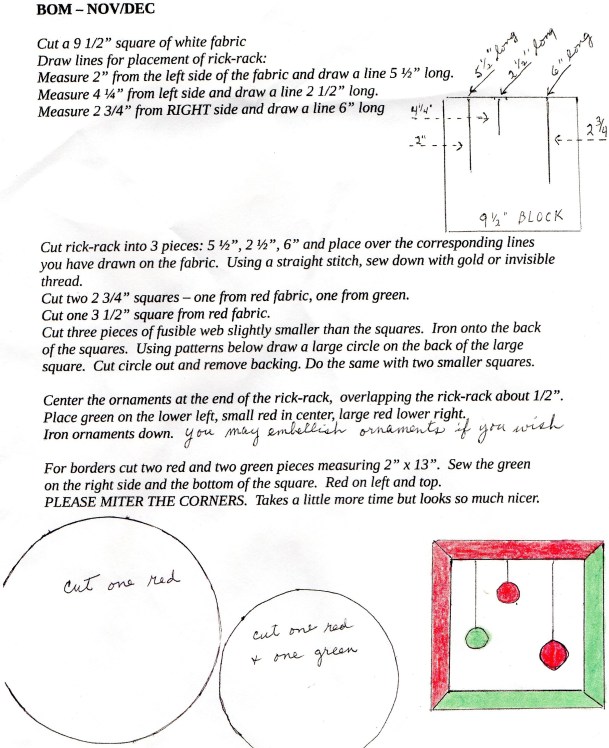 BOM – NOV/DEC
Cut a 9 1/2” square of white fabric
Draw lines for placement of rick-rack:
Measure 2” from the left side of the fabric and draw a line 5 ½” long.
Measure 4 ¼” from left side and draw a line 2 1/2” long.
Measure 2 3/4” from RIGHT side and draw a line 6” long
5 1/2" long
2 1/2" long
6" long
4 1/4"
2"
2 3/4
9 1/2" BLOCK
Cut rick-rack into 3 pieces: 5 ½”, 2 ½”, 6” and place over the corresponding lines
you have drawn on the fabric.  Using a straight stitch, sew down with gold or invisible
thread.
Cut two 2 3/4” squares – one from red fabric, one from green.
Cut one 3 1/2” square from red fabric.
Cut three pieces of fusible web slightly smaller than the squares.  Iron onto the back
of the squares.  Using patterns below draw a large circle on the back of the large
square.  Cut circle out and remove backing. Do the same with two smaller squares.
Center the ornaments at the end of the rick-rack,  overlapping the rick-rack about 1/2”.
Place green on the lower left, small red in center, large red lower right.
Iron ornaments down. you may embellish ornaments if you wish
For borders cut two red and two green pieces measuring 2” x 13”.  Sew the green
on the right side and the bottom of the square.  Red on left and top.
PLEASE MITER THE CORNERS.  Takes a little more time but looks so much nicer.
cut one red
cut one red
+ one green